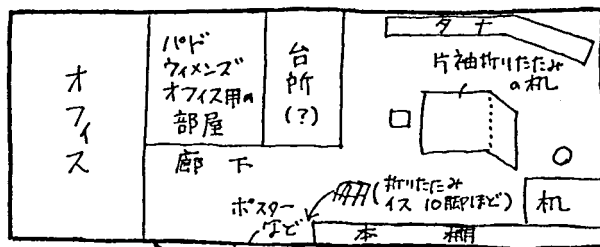 オフィス
パド
ウィメンズ
オフィス用の
部屋
台所
(?)
廊下
タナ
片袖折りたたみ
の机
ポスター
など
(折りたたみ
イス 10脚ほど)
机
本棚